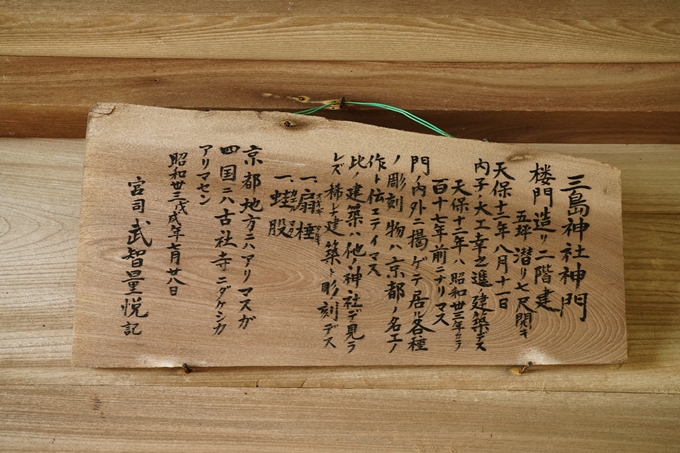 三島神社神門
楼門造リ二階建
五坪潜リ七尺開キ
天保十二年八月十一日
内子ノ大工幸之進建築デス
天保十二年ハ昭和卅三年カラ
百十七年前ニナリマス
門ノ内外ニ掲ゲテ居ル各種
ノ彫刻物ハ京都ノ名工ノ
作ト伝エテイマス
此ノ建築ハ他ノ神社デ見ラ
レズ稀しキ建築ト彫刻デス
一、扇棰
一、蛙股
京都地方ニハアリマスガ
四国ニハ古社寺ニダケシカ
アリマセン
昭和卅三戊戌年七月廿八日
宮司 武智量悦記